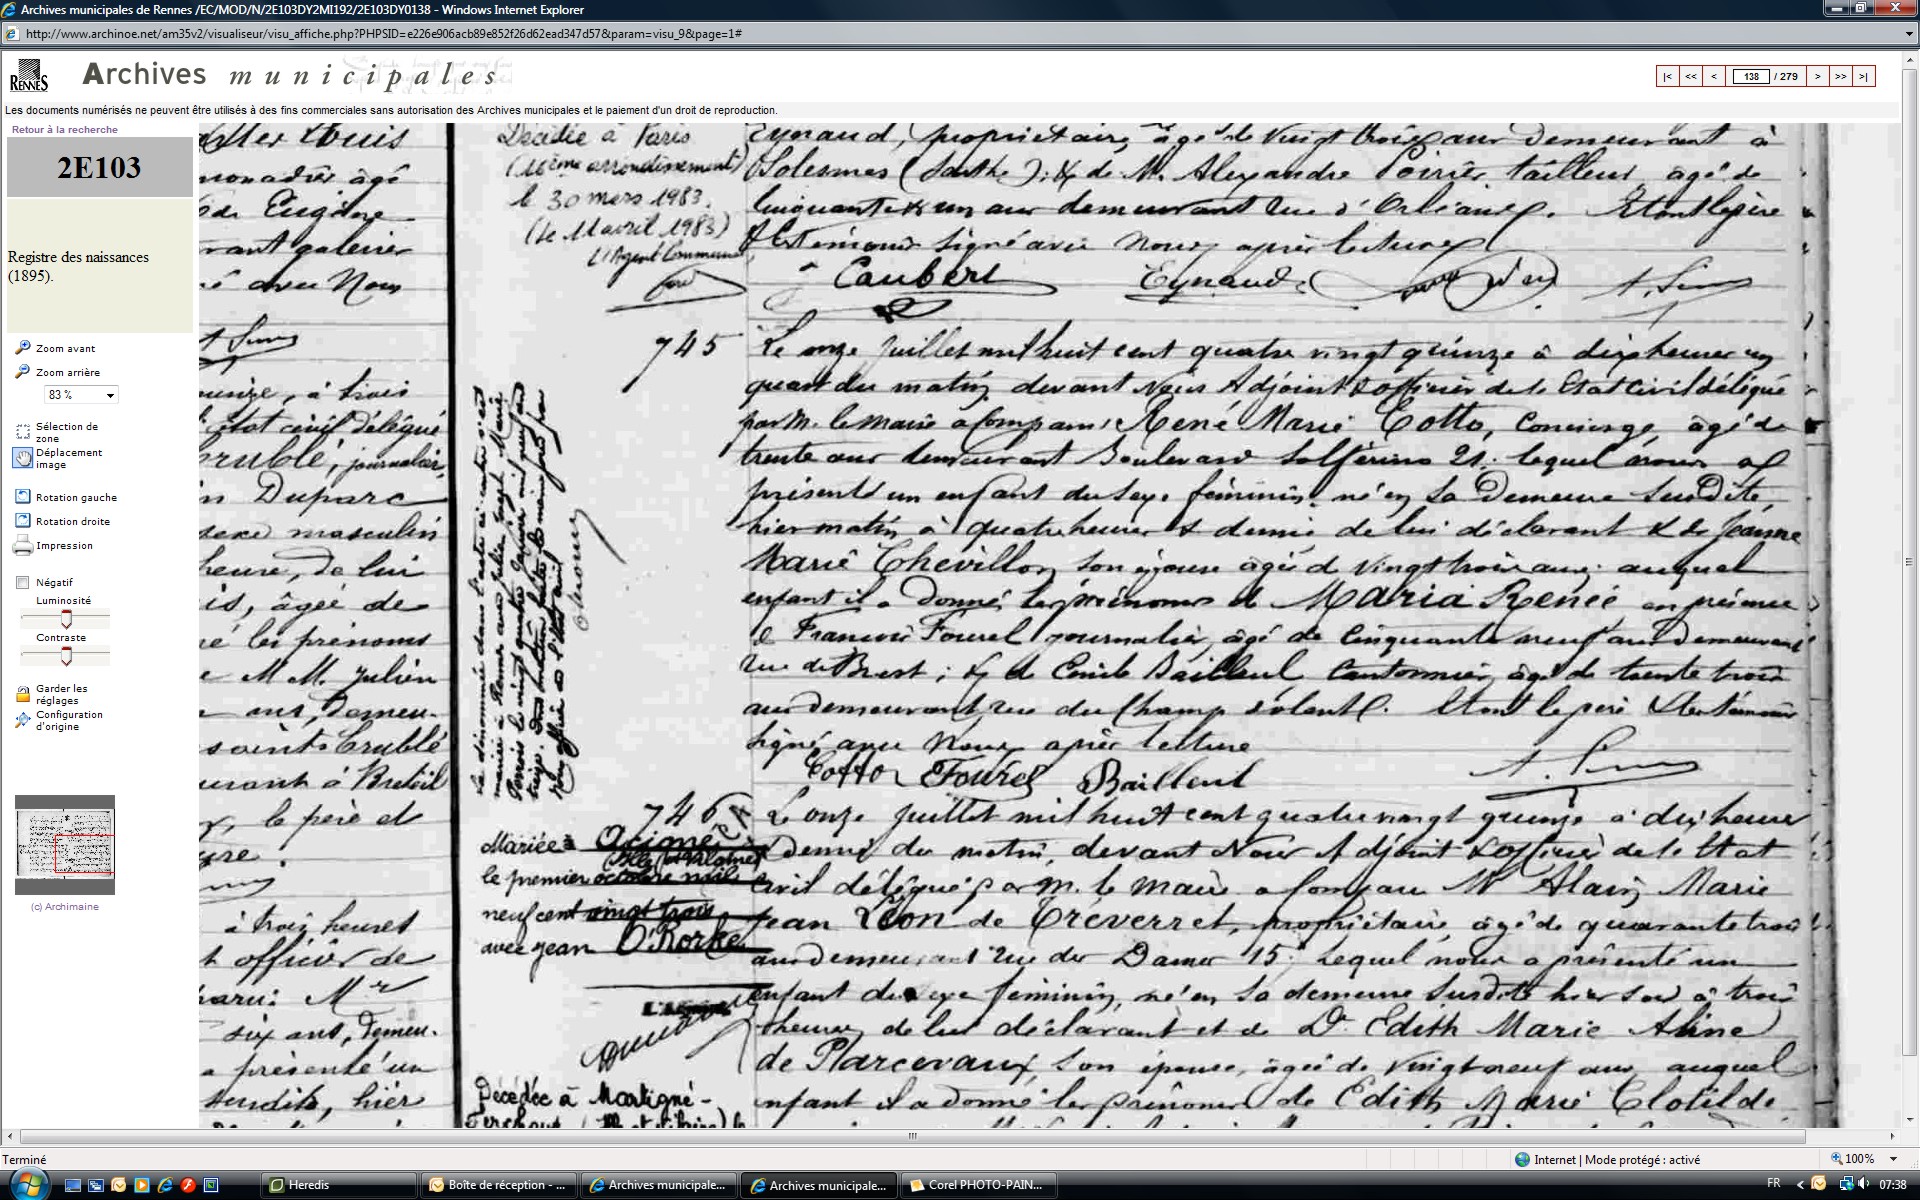 Archives municipales de Rennes /EC/MOD/N/2E103DY2MI192/2E103DY0138 - Windows Internet Explorer
http://www.archinoe.net/am35v2/visualiseur/visu_affiche.php?PHPSID=e226e906acb89e852f26d62ead347d57&param=visu_9&page=1#
RENNES
Archives municipales
|< << < 138 / 279 > >> >|
Les documents numérisés ne peuvent être utilisés à des fins commerciales sans autorisation des Archives municipales et le paiement d'un droit de reproduction.
Retour à la recherche
2E103
Registre des naissances
(1895).
Zoom avant
Zoom arrière
83 %
Sélection de
zone
Déplacement
image
Rotation gauche
Rotation droite
Impression
Négatif
Luminosité
Contraste
Garder les
réglages
Configuration
d'origine
(c) Archimaine
Louis
âgé
Eugène
avec Nous
à trois
état civil délégué
Crublé, journalier
Duparc
sexe masculin
heure, de lui
âgée de
les prénoms
MM. Julien
ans, demeu-
Crublé
à Breteil
le père et
à trois heures
officier de
Mr
six ans, demeu-
présenté un
susdite, hier
Décédée à Paris
(16ème arrondissement)
le 30 mars 1983.
(Le 11 avril 1983)
L'Agent Communal
Eynaud, propriétaire, âgé de vingt trois ans demeurant à
Solesmes (Sarthe); & de M. Alexandre Poirier tailleur, âgé de
cinquante & un ans demeurant rue d'Orléans. Et ont le père
& les témoins signé avec Nous après lecture
Caubert Eynaud
745
Le onze juillet mil huit cent quatre vingt quinze à dix heures un
quart du matin, devant Nous Adjoint & officier de l'Etat civil délégué
par M. le maire a comparu René Marie Cotto, concierge, âgé de
trente ans demeurant Boulevard Solférino 21; lequel nous a
présenté un enfant du sexe féminin, né en sa demeure susdite,
hier matin à quatre heures & demie de lui déclarant & de Jeanne
Marie Chevillon, son épouse âgée de vingt trois ans; auquel
enfant il a donné les prénoms de Maria Renée en présence
de François Fourel journalier, âgé de cinquante neuf ans demeurant
rue de Brest; & de Emile Bailleul cantonnier, âgé de trente trois
ans demeurant rue du Champ dolent. Et ont le père & les témoins
signé avec Nous après lecture
Cotto Fourel Bailleul
746
Mariée à
le premier octobre mil
neuf cent vingt trois
avec Jean O'Rorke
Le onze juillet mil huit cent quatre vingt quinze à dix heures
& demie du matin, devant Nous Adjoint & officier de l'Etat
civil délégué par M. le maire a comparu Mr Alain Marie
Jean Léon de Tréverret, propriétaire, âgé de quarante trois
ans demeurant rue des Dames 15; lequel nous a présenté un
enfant du sexe féminin, né en sa demeure susdite hier soir à trois
heures de lui déclarant et de De Edith Marie Aline
de Parcevaux, son épouse, âgée de vingt neuf ans, auquel
enfant il a donné les prénoms de Edith Marie Clotilde
Décédée à Martigné-
Terminé
Internet | Mode protégé : activé
100%
Heredis
Boîte de réception - ...
Archives municipale...
Archives municipale...
Corel PHOTO-PAIN...
FR
07:38